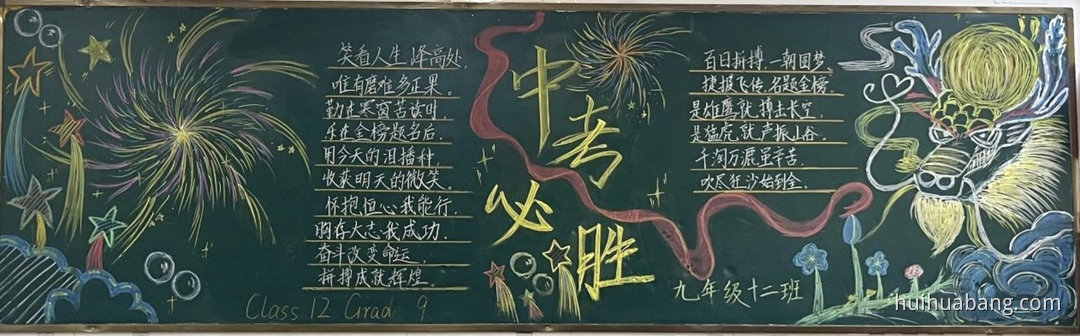 笑看人生峰高处,
唯有磨难多正果。
勤在寒窗苦读时,
乐在金榜题名后,
用今天的泪播种,
收获明天的微笑。
怀抱恒心我能行,
胸存大志我成功,
奋斗改变命运,
拼搏成就辉煌。
Class 12 Grad 9
中考
必胜
百日拼搏,一朝圆梦。
捷报飞传,名题金榜,
是雄鹰就搏击长空,
是猛虎就声振山谷,
千淘万漉虽辛苦,
吹尽狂沙始到金。
九年级十二班
huihuabang.com